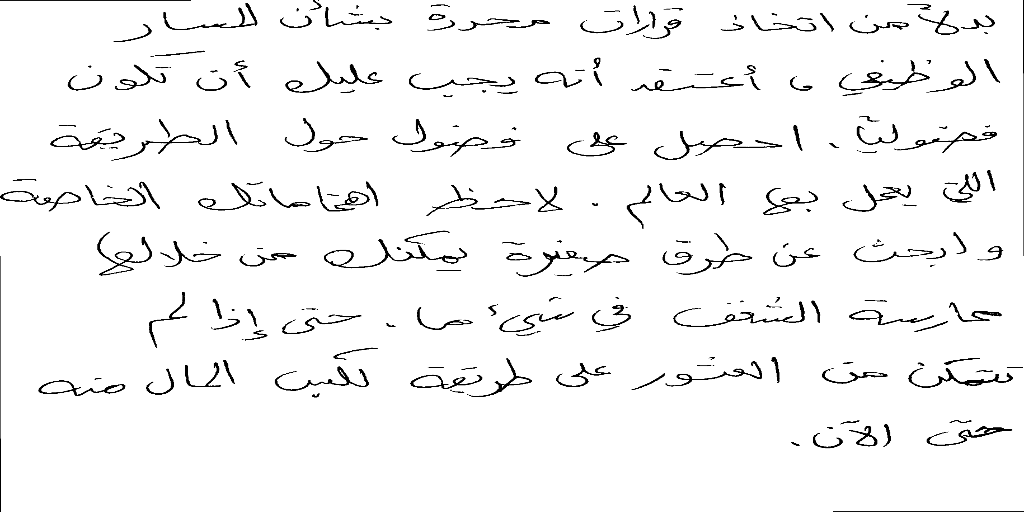 بدلاً من اتخاذ قرارات محددة بشأن المسار
الوظيفي ، أعتقد أنه يجب عليك أن تكون
فضوليًا. احصل على فضول حول الطريقة
التي يعمل بها العالم . لاحظ اهتماماتك الخاصة
وابحث عن طرق صغيرة يمكنك من خلالها
ممارسة الشغف في شيء ما. حتى إذا لم
تتمكن من العثور على طريقة لكسب المال منه
حتى الآن.